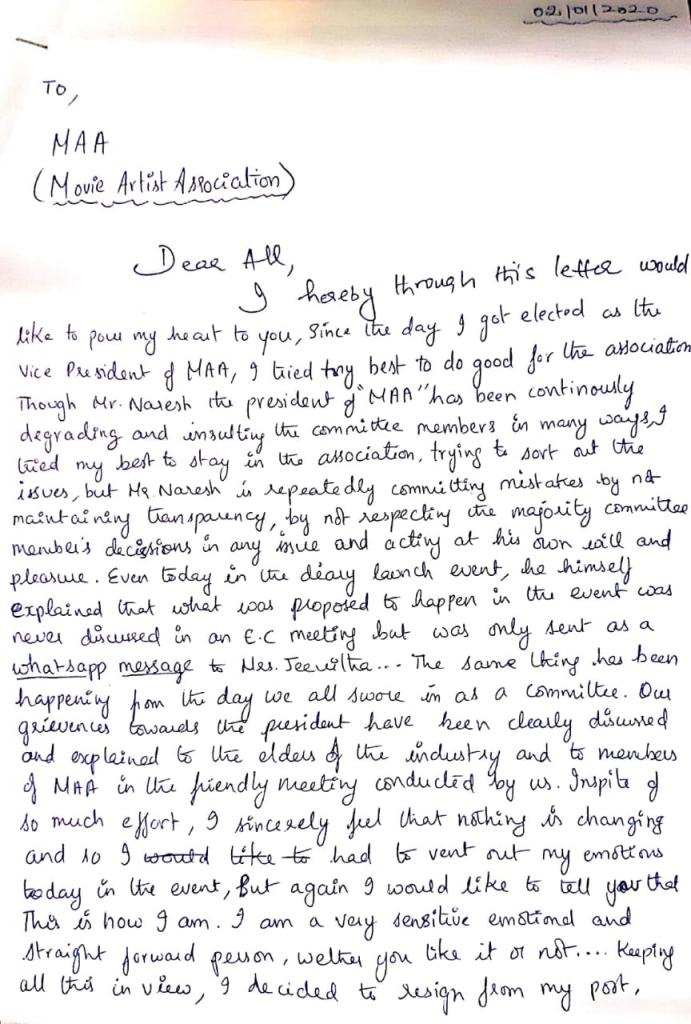 02/01/2020
To,
MAA
(Movie Artist Association)
Dear All,
I hereby through this letter would
like to pour my heart to you, Since the day I got elected as the
Vice President of MAA, I tried my best to do good for the association
Though Mr. Naresh the president of "MAA" has been continously
degrading and insulting the committee members in many ways, I
tried my best to stay in the association, trying to sort out the
issues, but Mr. Naresh is repeatedly committing mistakes by not
maintaining transparency, by not respecting the majority committee
member's decissions in any issue and acting at his own will and
pleasure. Even today in the diary launch event, he himself
explained that what was proposed to happen in the event was
never discussed in an E.C meeting but was only sent as a
whatsapp message to Mrs. Jeevitha... The same thing has been
happening from the day we all swore in as a committee. Our
grievences towards the president have been clearly discussed
and explained to the elders of the industry and to members
of MAA in the friendly meeting conducted by us. Inspite of
so much effort, I sincerely feel that nothing is changing
and so I would like to had to vent out my emotions
today in the event, But again I would like to tell you that
This is how I am. I am a very sensitive emotional and
straight forward person, wether you like it or not.... Keeping
all this in view, I decided to resign from my post.